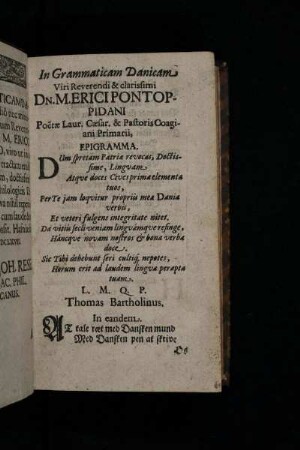 TICAM DA
M. ERICI
OH. RESE
AC. PHIL.
CANUS.
In Grammaticam Danicam
Viri Reverendi & clarissimi
DN. M. ERICI PONTOP-
PIDANI
Poëtæ Laur. Cæsar. & Pastoris Coagi-
ani Primarii,
EPIGRAMMA.
DUm spretam Patriæ revocas, Doctis-
sime, Lingvam
Atque doces Cives prima elementa
tuos,
Per Te jam loqvitur propriis mea Dania
verbis,
Et veteri fulgens integritate nitet.
Da vitiis secli veniam lingvamque refinge,
Hancque novam nostros & bona verba
doce.
Sic Tibi debebunt seri cultiq; nepotes,
Horum erit ad laudem lingva perapta
tuam.
L. M. Q. P.
Thomas Bartholinus.
In eandem.
AT tale ret med Dansken mund
Med Dansken pen at skrive
Og